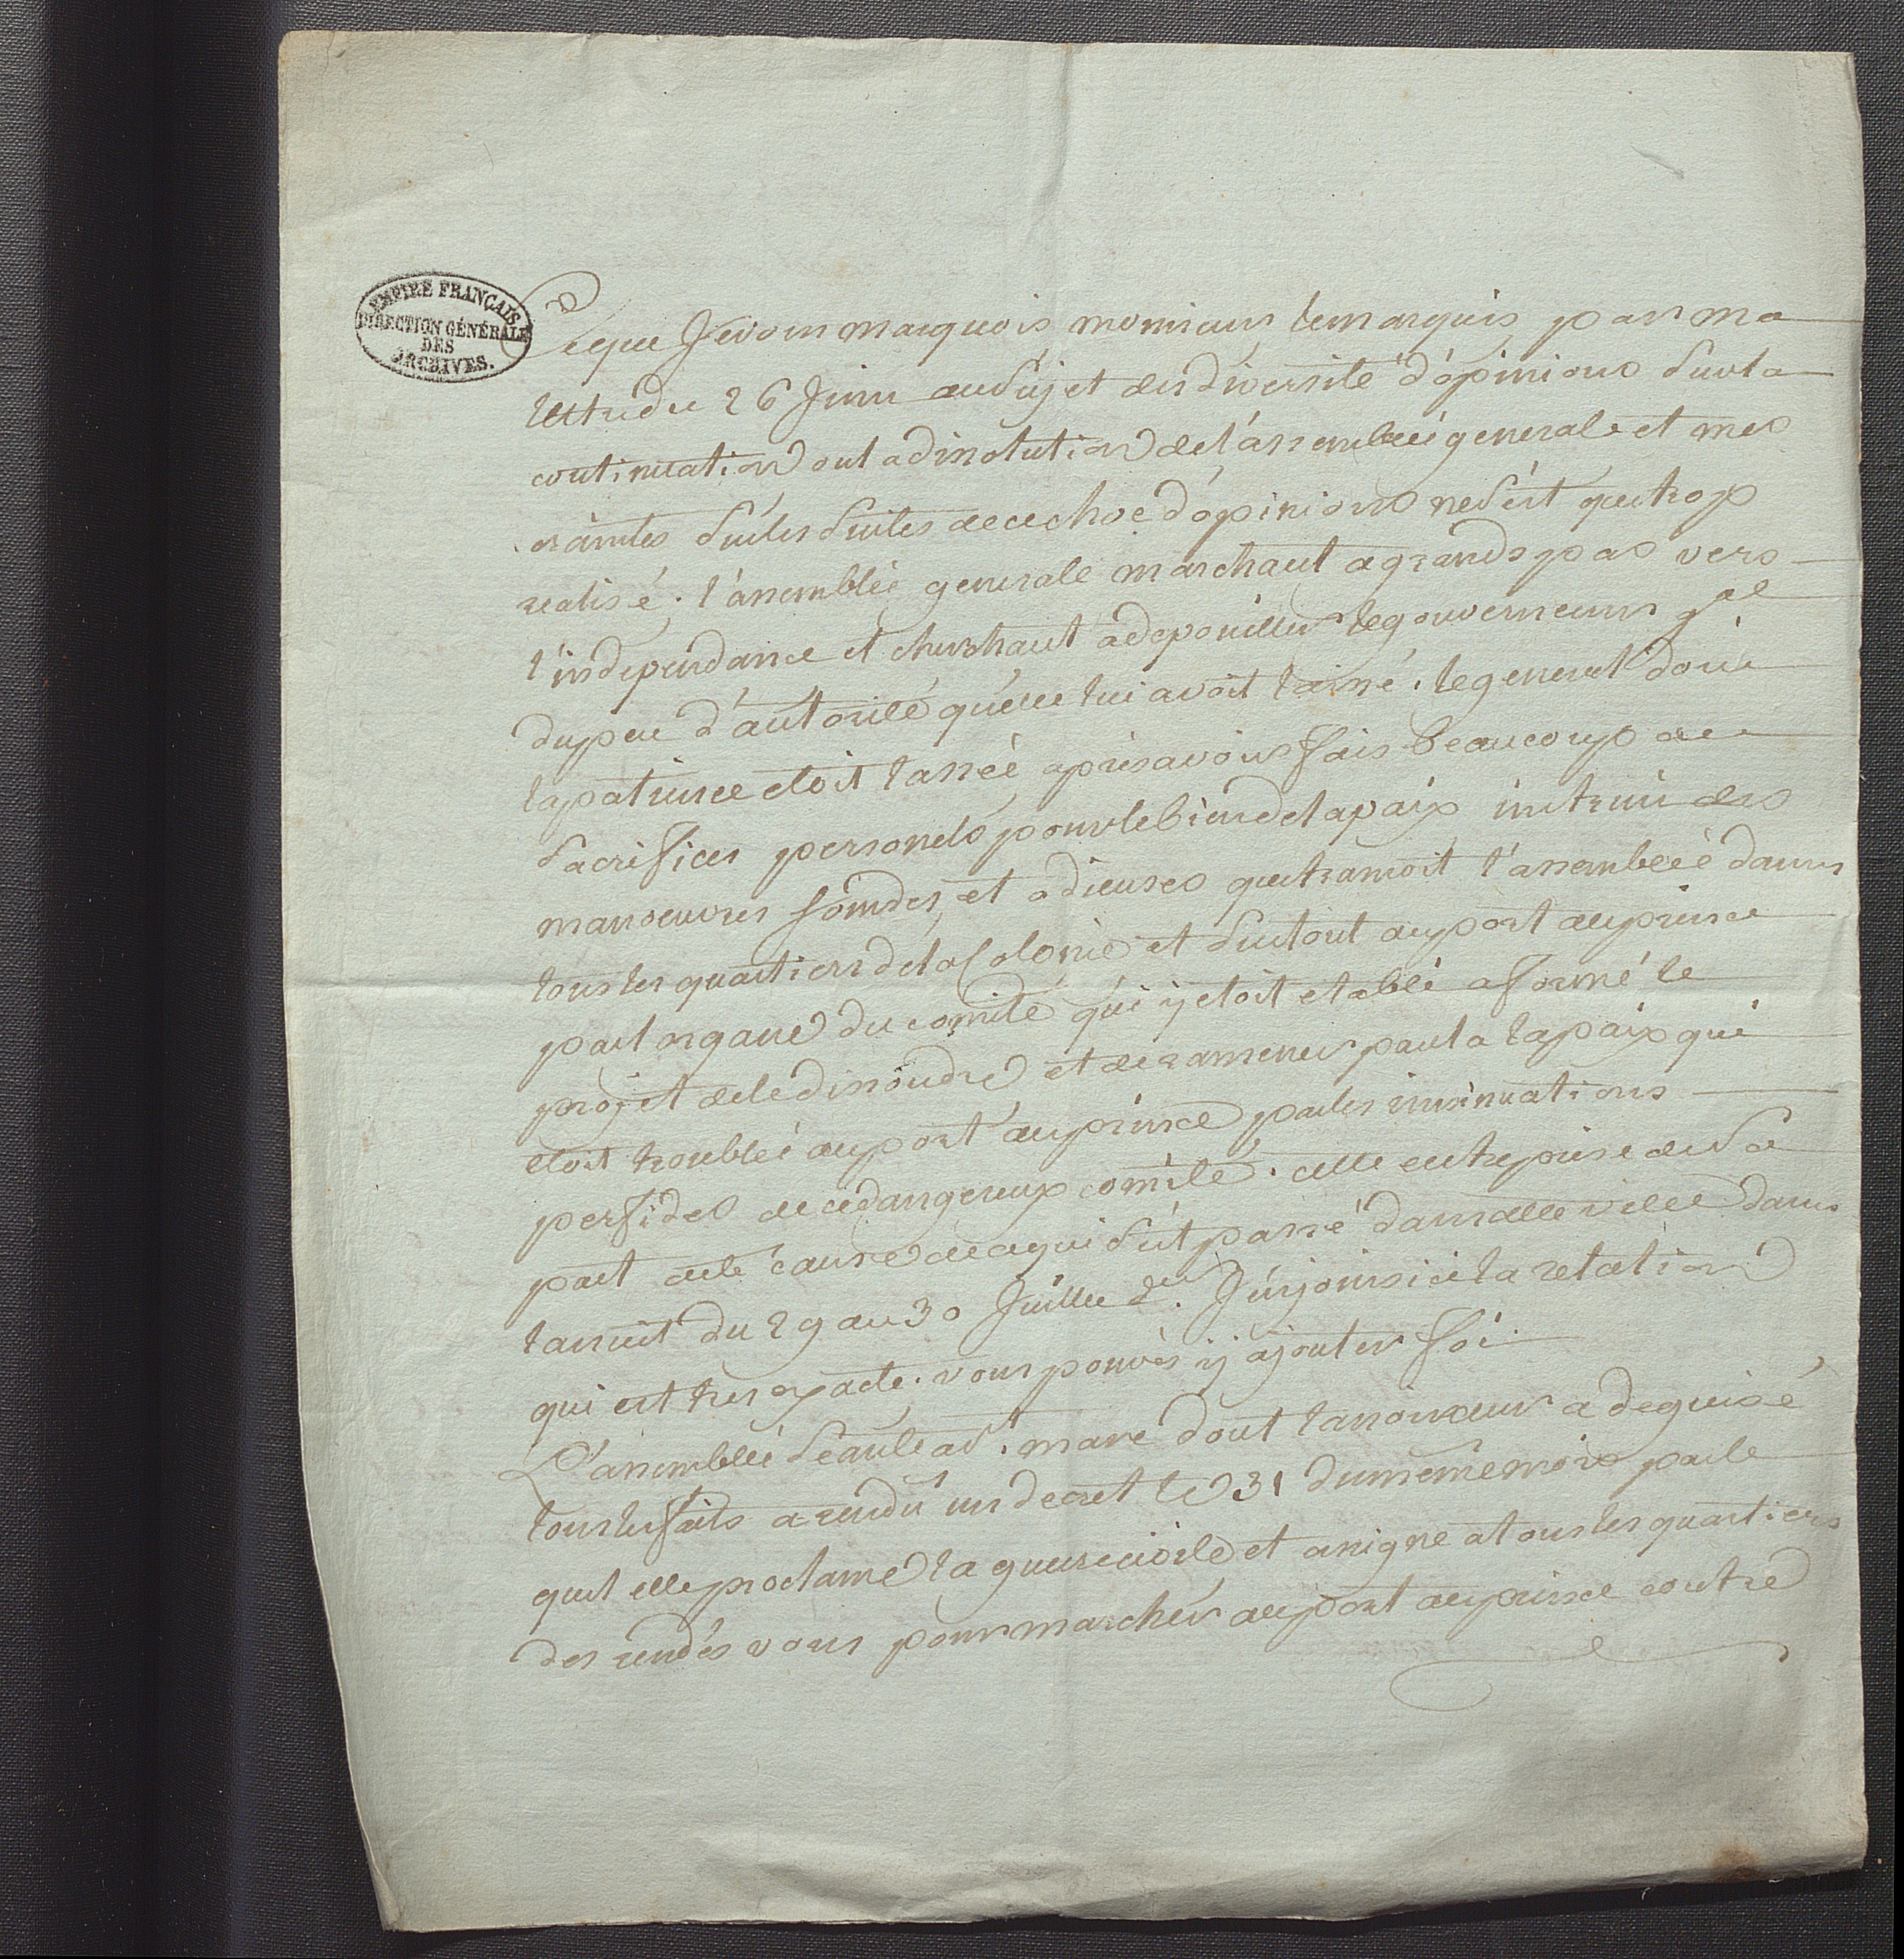 EMPIRE FRANÇAIS
DIRECTION GÉNÉRALE
DES
ARCHIVES.
Ceque Je vous marquois, monsieur lemarquis par ma
lettre du 26 Juin au Sujet des diversité d'opinions Sur la
continuation ou la dissolution de l'assemblée generale et mes
craintes Sur les Suites de ce choc d'opinions ne S'est que trop
realisé. l'assemblée generale marchant a grands pas vers
l'independance et cherchant a depouiller le gouverneur gal
du peu d'autorité qu'elle lui avoit laissé. le general dont
la patience etoit lassée après avoir fais beaucoup de
Sacrifices personels pour le bien de la paix instruit des
manoeuvres sourdes et odieuses que tramoit l'assemblée dans
tous les quartiers de la Colonie et Surtout au port au prince
par l'organe du comité qui y etoit etabli a formé le
projet de le dissoudre et de ramener par la la paix qui
etoit troublée au port au prince par les insinuations
perfides de ce dangereux comité. cette entreprise de Sa
part a été cause de ce qui S'est passé dans cette ville dans
la nuit du 29 au 30 Juillet dr. J'en joins ici la relation
qui est tres exacte. vous pouvés y ajouter foi.
L'assemblée Seante a St. marc dont la noirceur a deguisé
tous les faits a rendu un decret le 31 du meme mois par le
quel elle proclame la guerre civile et assigne a tous les quartiers
des rendés vous pour marcher au port au prince contre